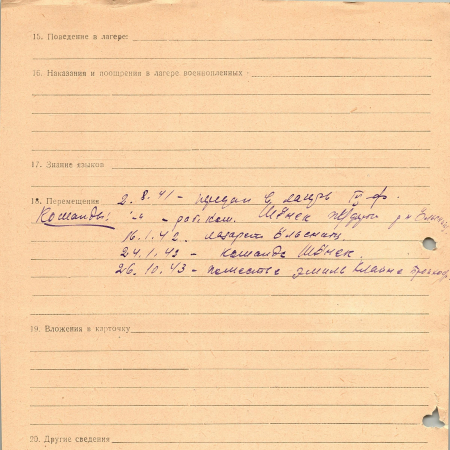 15. Поведение в лагере:
16. Наказания и поощрения в лагере военнопленных
17. Знание языков
18. Перемещения 2.8.41 - придан в лагерь IV ф.
Команды: -"- - раб. ком. Шёнек
16.1.42. лазарет Ёльсниц.
24.1.43 - команда Шёнек.
26.10.43 - поместье
19. Вложения в карточку
20. Другие сведения